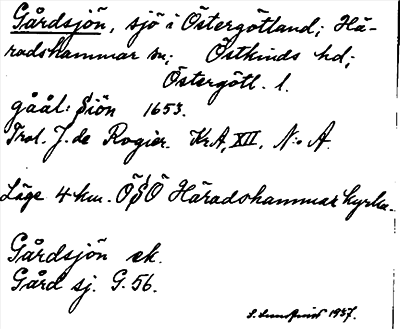 Gårdsjön, sjö i Östergötland; Hä-
radshammar sn; Östkinds hd;
Östergötl. l.
gåål: Siön 1653.
Trol. J. de Rogier. KrA, XII, N:o A.
Läge 4 km. ÖSÖ Häradshammar kyrka.
Gårdsjön ek.
Gård sj. G. 56.
S. Lundqvist 1937.